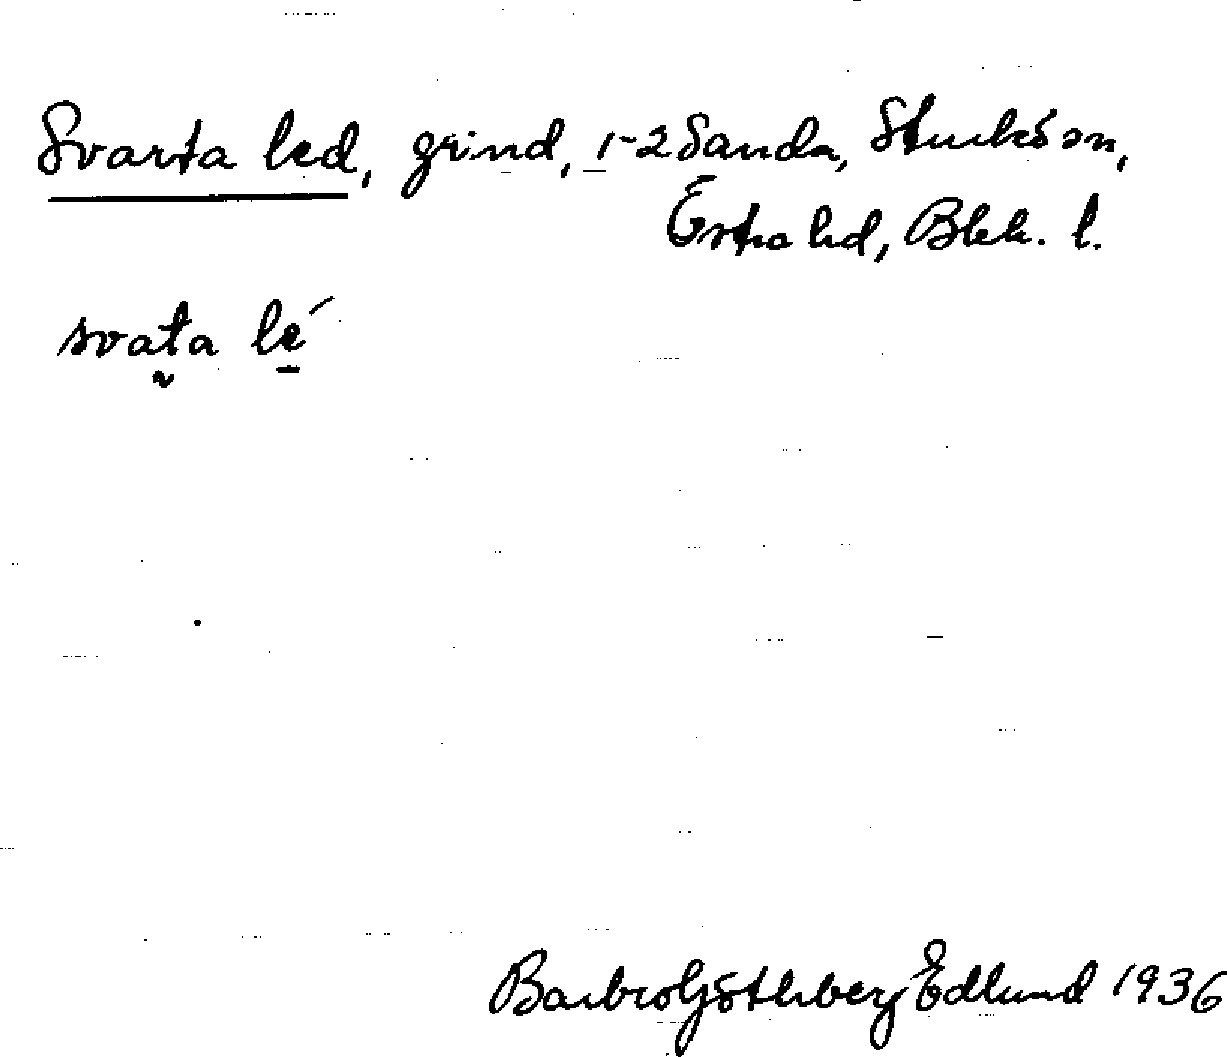 Svarta led, grind, 1-2 Sanda, Sturkö sn,
Östra hd, Blek. l.
svaṭa lé
Barbro Götherberg Edlund 1936